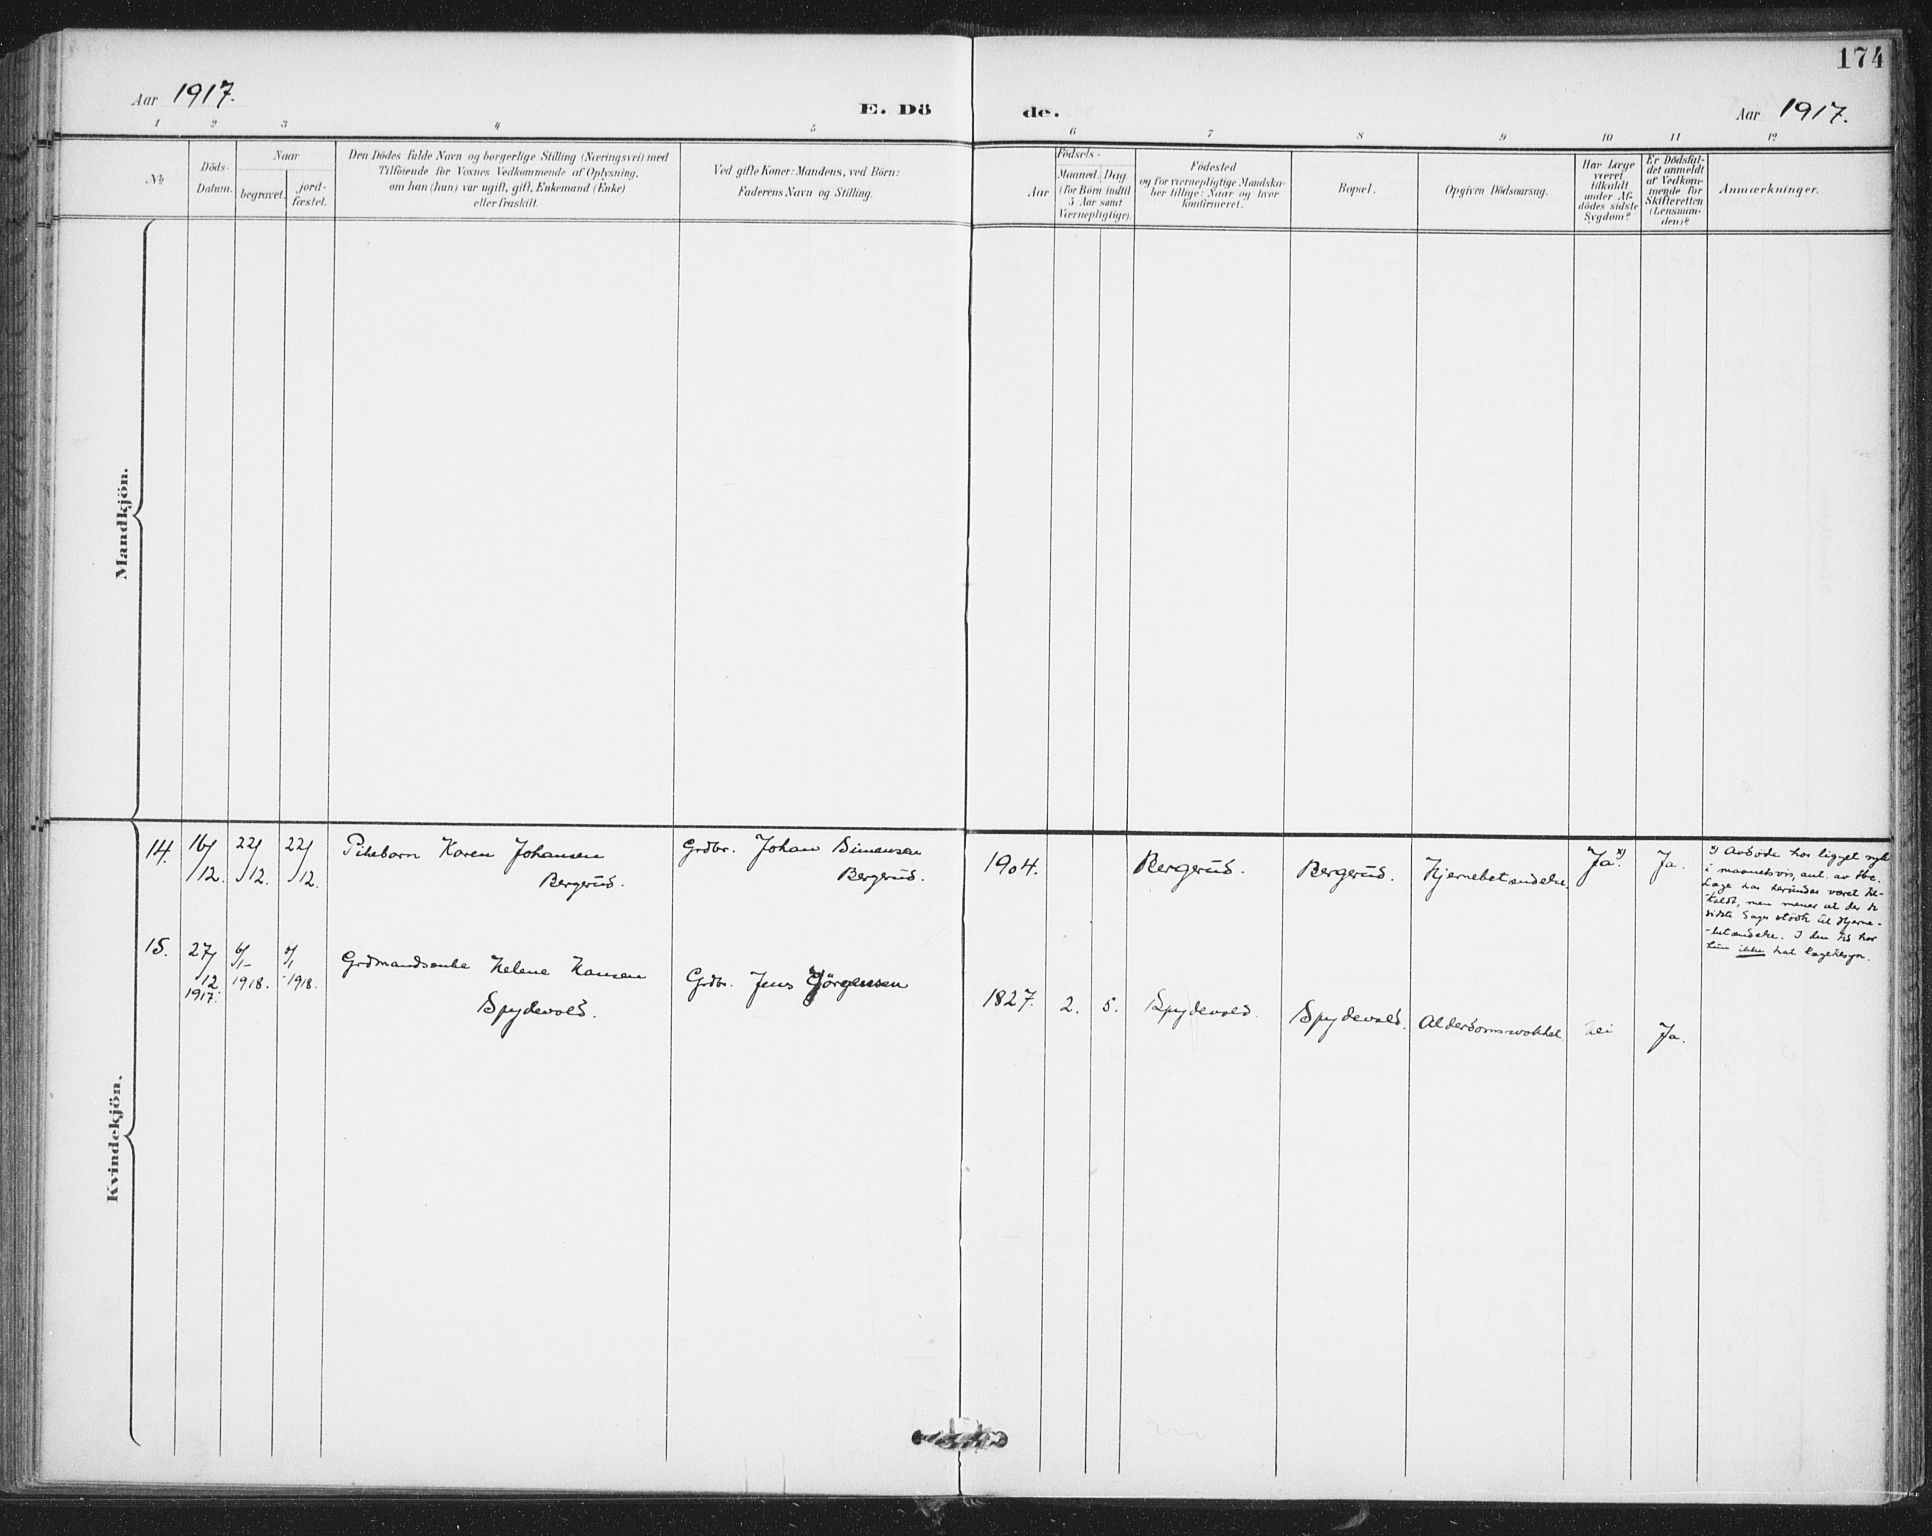 174
Aar 1917.
E. Dö de.
Aar 1917.
1 2 3 4 5 6 7 8 9 10 11 12
No
Döds-
Datum.
Naar
begravet.
jord-
fæstet.
Den Dödes fulde Navn og borgerlige Stilling (Næringsvei) med
Tilföiende for Voxnes Vedkommende af Oplysning,
om han (hun) var ugift, gift, Enkemand (Enke)
eller fraskilt.
Ved gifte Koner: Mandens, ved Börn:
Faderens Navn og Stilling.
Födsels-
Aar
Maaned. Dag
(for Börn indtil
5 Aar samt
Værnepligtige).
Födested
og for værnepligtige Mandska-
ber tillige: Naar og hvor
konfirmeret.
Bopæl.
Opgiven Dödsaarsag.
Har Læge
været
tilkaldt
under Af-
dödes sidste
Sygdom?
Er Dödsfal-
det anmeldt
af Vedkom-
mende for
Skifteretten
(Lensman-
den)?
Anmærkninger.
Mandkjön.
Kvindekjön.
14. 16/12. 22/12. 22/12. Pikebarn Karen Johansen
Bergerud.
Grdbr. Johan Simensen
Bergerud.
1904. Bergerud. Bergerud. Hjernebetændelse. Ja x) Ja.
x) Avdøde har ligget syk
i maanedsvis, ant. av tbc.
Læge har herunder været til-
kaldt, men mener at der de
sidste Dager stödte til Hjerne-
-betændelse. I den tid har
hun ikke hat lægetilsyn.
15. 27/12 1917. 6/1 1918. 6/1 1918. Grdmandsenke Helene Hansen
Spydevold.
Grdbr. Jens Jörgensen
1827. 2. 5. Spydevold. Spydevold. Alderdomssvakhet. Nei Ja.